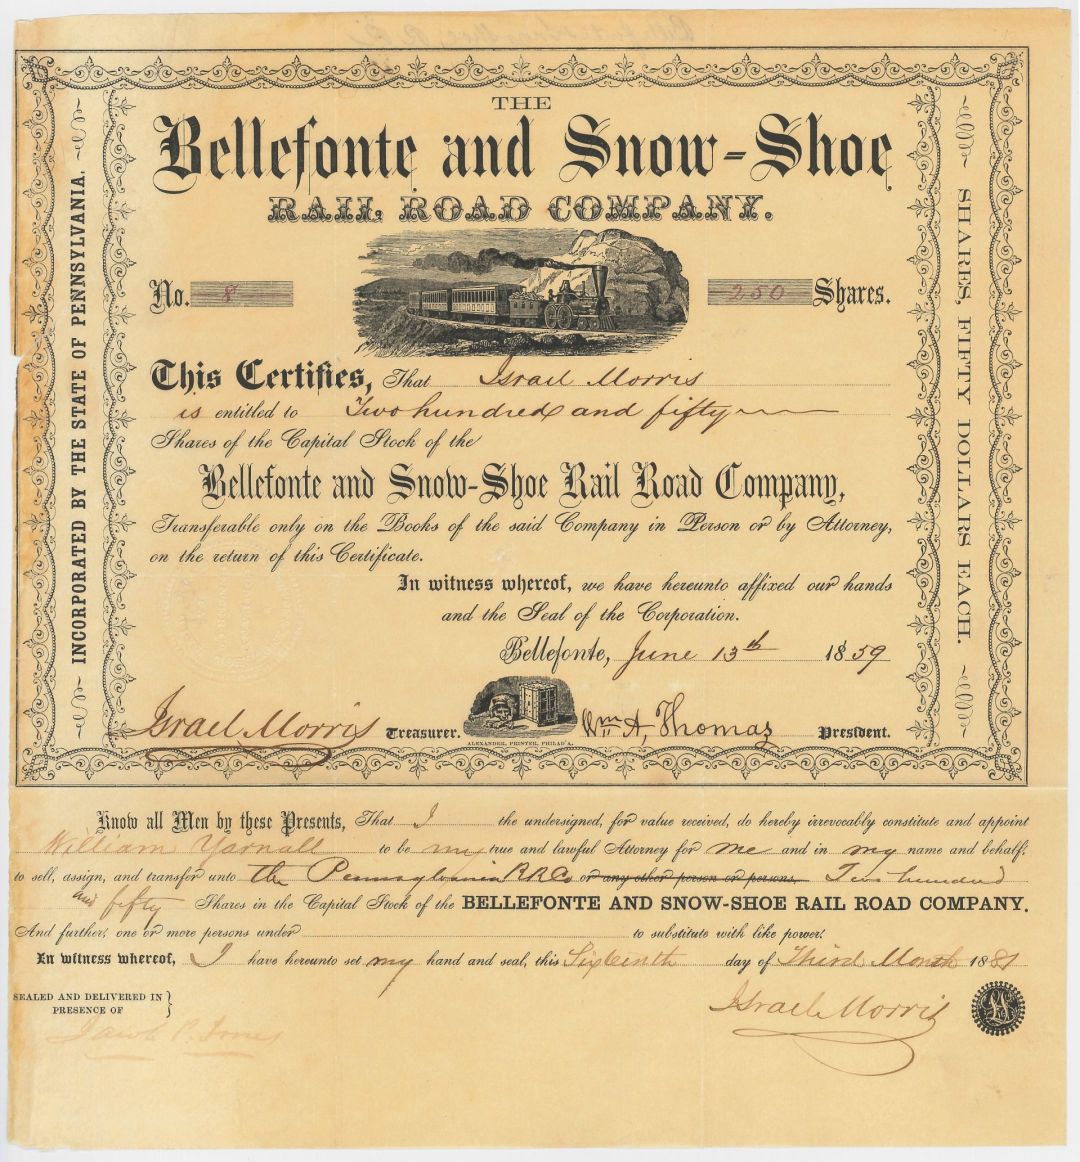 THE
Bellefonte and Snow-Shoe
RAIL ROAD COMPANY.
INCORPORATED BY THE STATE OF PENNSYLVANIA.
SHARES, FIFTY DOLLARS EACH.
No. 8 250 Shares.
This Certifies, That Israel Morris
is entitled to Two hundred and fifty
Shares of the Capital Stock of the
Bellefonte and Snow-Shoe Rail Road Company,
Transferable only on the Books of the said Company in Person or by Attorney,
on the return of this Certificate.
In witness whereof, we have hereunto affixed our hands
and the Seal of the Corporation.
Bellefonte, June 13th 1859
Israel Morris Treasurer. Wm A, Thomas President.
ALEXANDER, PRINTER, PHILAD'A.
Know all Men by these Presents, That I the undersigned, for value received, do hereby irrevocably constitute and appoint
William Yarnall to be my true and lawful Attorney for me and in my name and behalf,
to sell, assign, and transfer unto the Pennsylvania RR Co or any other person or persons, Two hundred
and fifty Shares in the Capital Stock of the BELLEFONTE AND SNOW-SHOE RAIL ROAD COMPANY.
And further, one or more persons under to substitute with like power.
In witness whereof, I have hereunto set my hand and seal, this Sixteenth day of Third Month 1881
SEALED AND DELIVERED IN
PRESENCE OF
Israel Morris
Jacob P. Jones